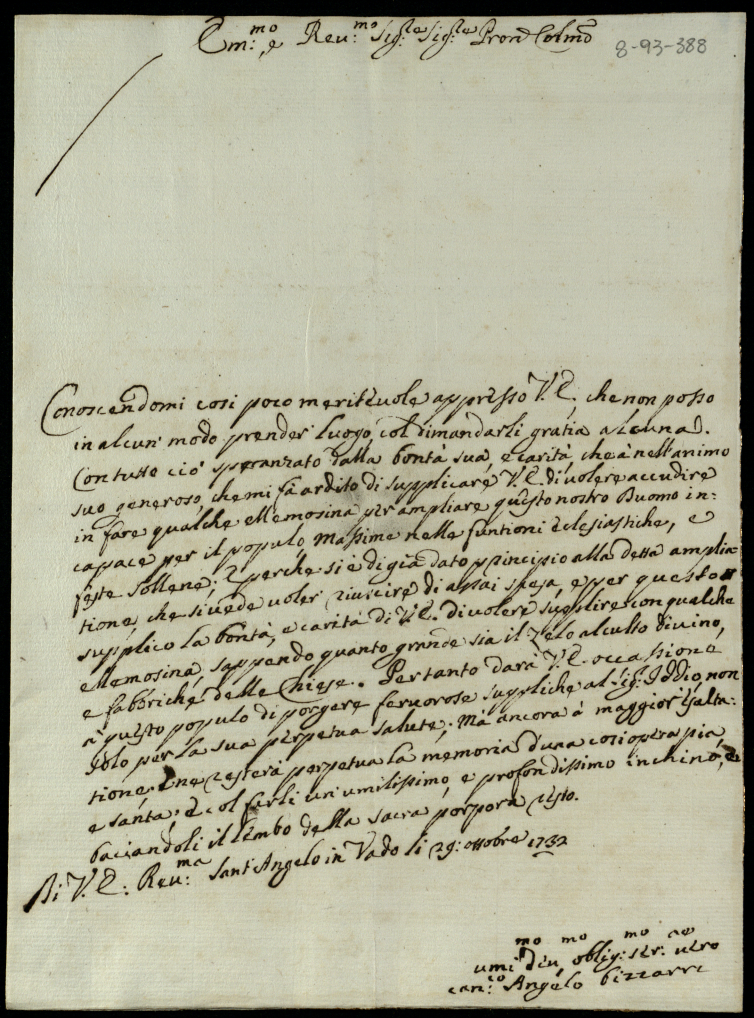 Em:mo e Reu:mo Sig:re Sig:re Pron Colmo
8-93-388
Conoscendomi cosi poco meriteuole appresso V. E. che non posso
in alcun modo prender luogo col dimandarli gratia alcuna.
Con tutto ciò speranzato dalla bontà sua, e carità che à nell'animo
suo generoso, che mi fà ardito di supplicare V. E. di uolere accudire
in fare qualche ellemosina per ampliare questo nostro Duomo in:
capace per il populo, Massime nelle funtioni eclesiastiche, e
feste sollene; E perche si è di già dato principio alla detta amplia
tione, che si uede uoler riuscire di assai spesa, e per questo
supplico la bontà, e carità di V. E. di uolere supplire con qualche
ellemosina, sappendo quanto grande sia il zelo al culto diuino,
e fabbriche delle Chiese. Pertanto darà V. E. occassione
à questo populo di porgere feruorose suppliche al Sig: Iddio, non
solo per la sua perpetua salute; Mà ancora à maggior esalta:
tione. E ne resterà perpetua la memoria d'una cosi opera pia,
e santa; E col farli un umilissimo, e profondissimo inchino, e
baciandoli il lembo della sacra porpora resto.
Di V. E: Reu:ma Sant'Angelo in Vado li 29: ottobre 1732
umi:mo deu:mo oblig:mo ser:re uero
can:co Angelo Bizzarri